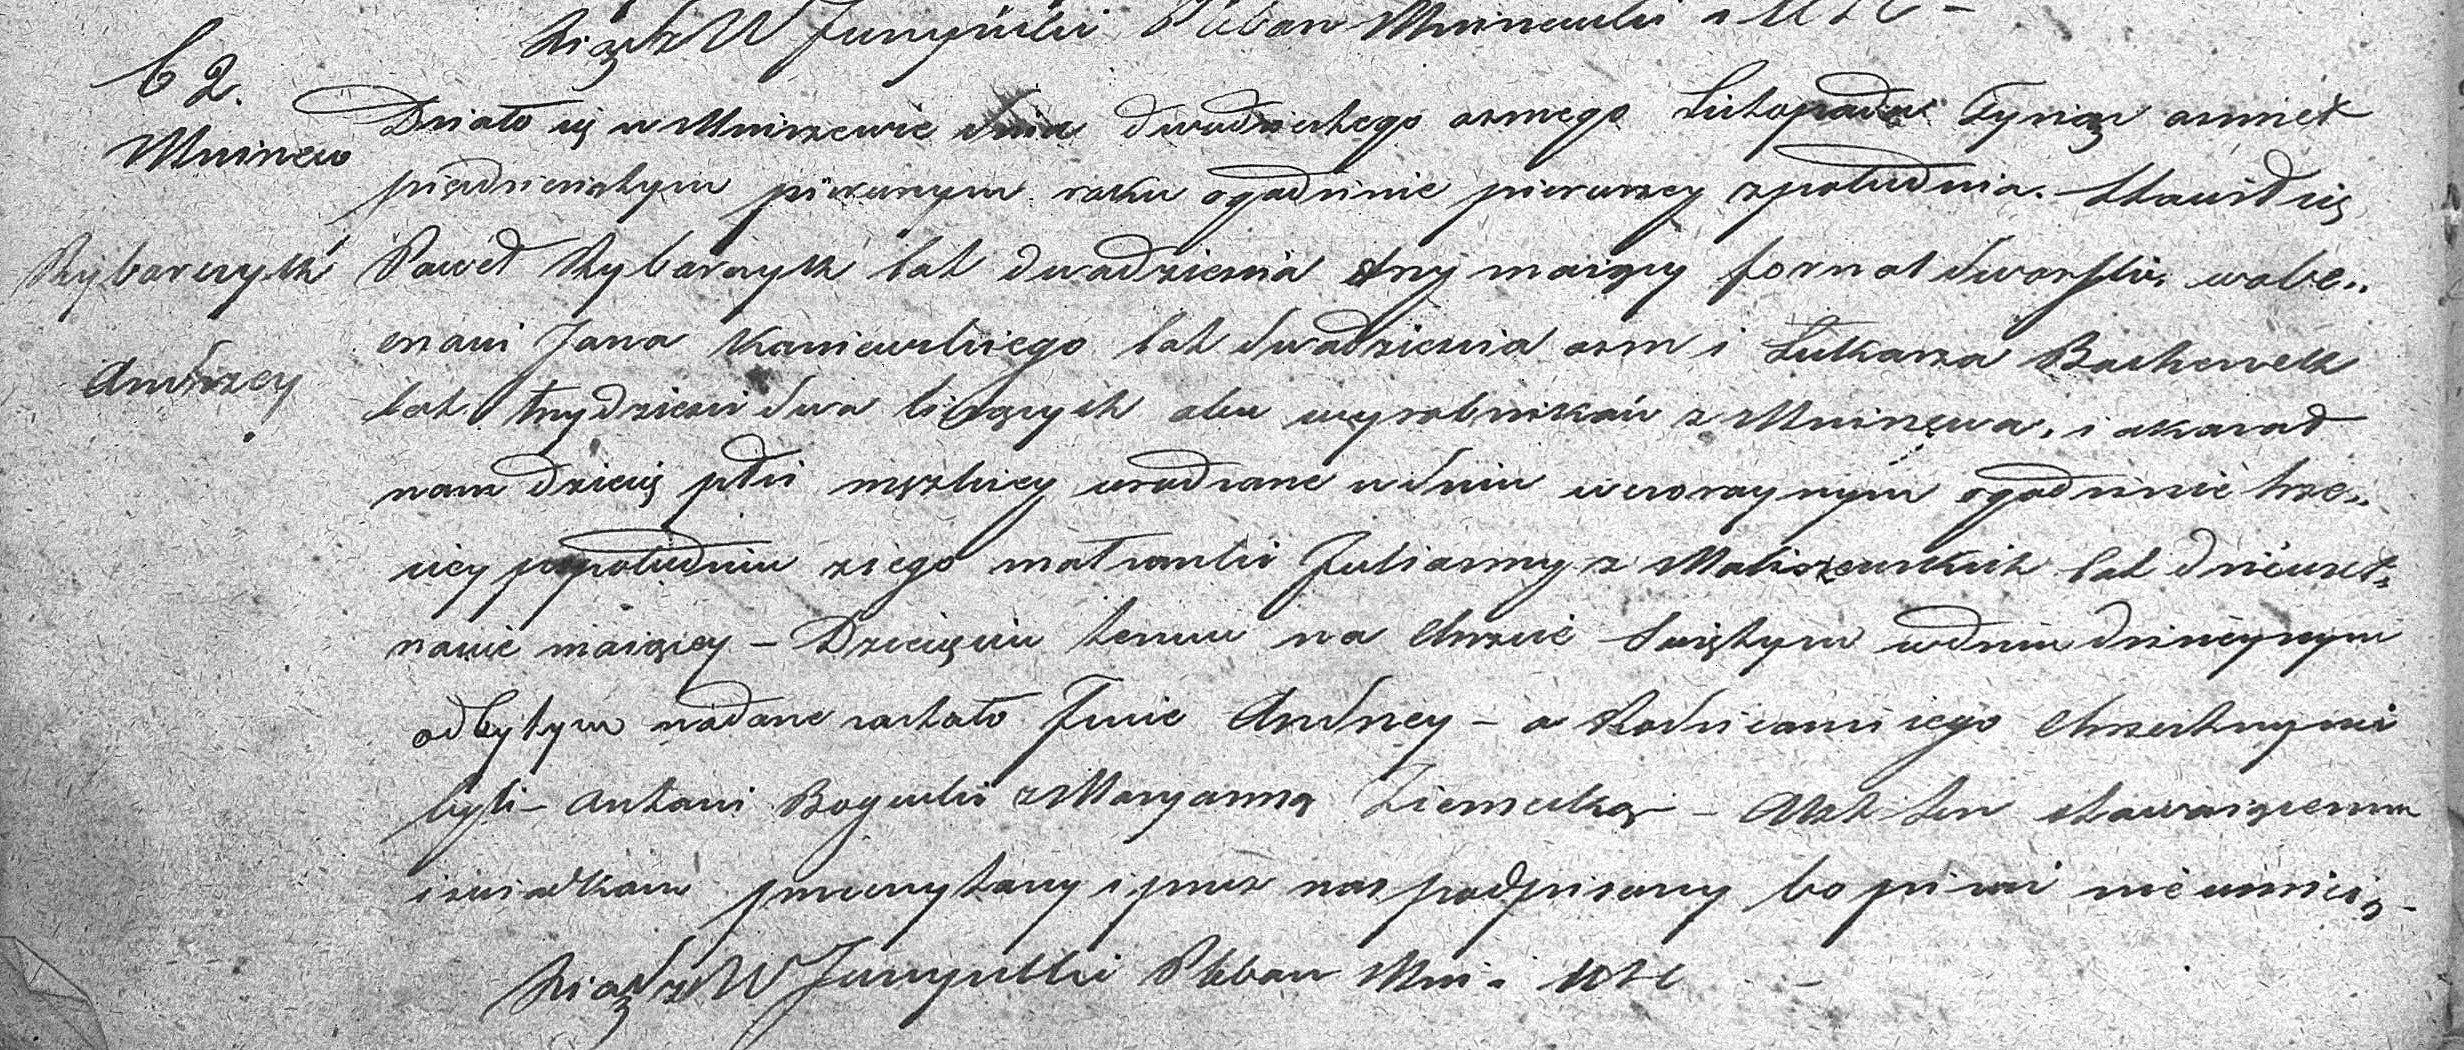 Xiądz W Pleban Mniszewski
62.
Mniszew
Rybarczyk
Andrzey
Działo się w Mniszewie dnia dwudziestego osmego Listopada Tysiąc osmset
pięćdziesiątym pierwszym roku ogodzinie pierwszey zpołudnia. Stawił się
Paweł Rybarczyk lat dwadzieścia trzy maiący fornal dworski, wobe„
cnosci Jana Kaniewskiego lat dwadzieścia osm i Łukasza
lat trzydzieści dwa liczących obu wyrobników z Mniszewa, i okazał
nam dziecię płci męzkiey urodzone w dniu wczorayszym ogodzinie trze„
ciey popołudniu ziego małżonki Julianny z Matiszewskich lat dziewięt„
naście maiącey – Dziecięciu temu na Chrzcie Swiętym wdniu dzisieyszym
odbytym nadane zostało Imie Andrzey – a Rodzicami iego Chrzestnymi
byli – Antoni Bogucki z Maryanną Ziemecką – Akt ten stawaiącemu
i swiadkom przeczytany i przez nas podpisany bo pisać nie umieią –
Xiądz W Pleban Mni.